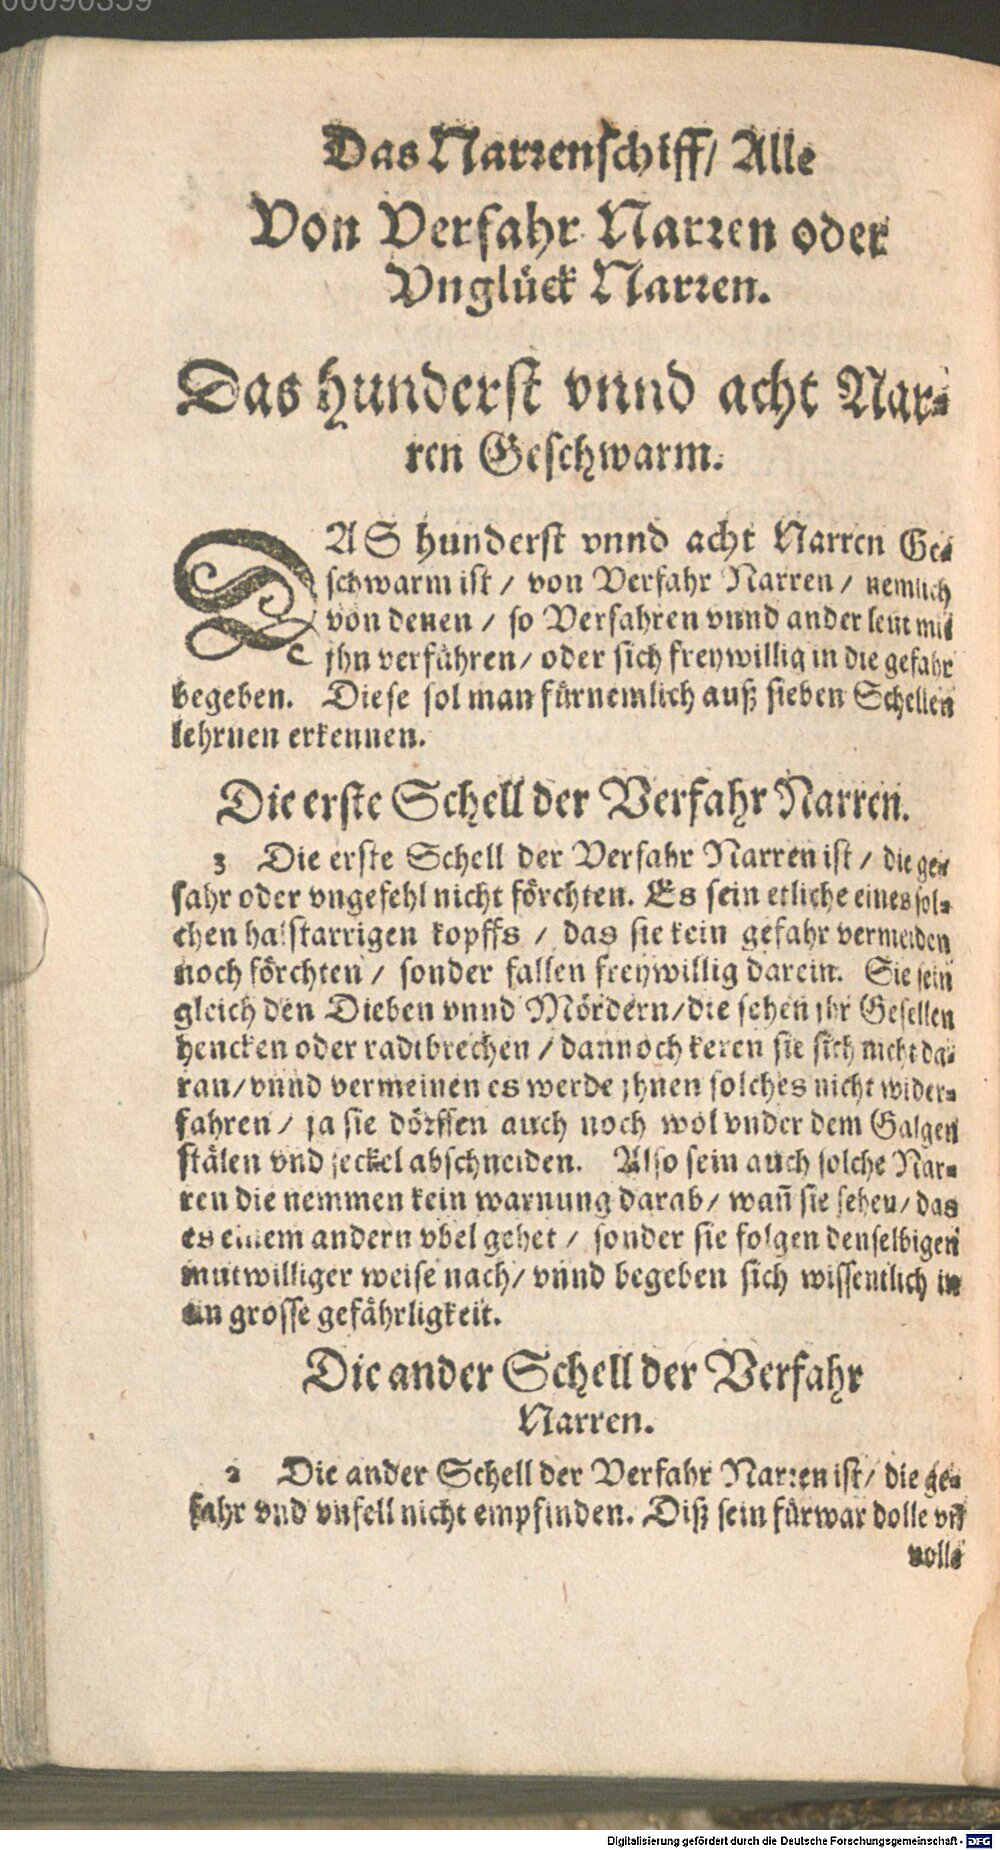 00090359
Das Narrenschiff/ Alle
Von Verfahr Narren oder
Vnglück Narren.
Das hunderst vnnd acht Nar-
ren Geschwarm.
DAS hunderst vnnd acht Narren Ge-
schwarm ist / von Verfahr Narren / nemlich
von denen / so Verfahren vnnd ander leut mit
jhn verführen / oder sich freywillig in die gefahr
begeben. Diese sol man fürnemlich auß sieben Schellen
lehrnen erkennen.
Die erste Schell der Verfahr Narren.
3 Die erste Schell der Verfahr Narren ist / die ge-
fahr oder vngefehl nicht förchten. Es sein etliche eines sol-
chen halstarrigen kopffs / das sie kein gefahr vermeiden
noch förchten / sonder fallen freywillig darein. Sie sein
gleich den Dieben vnnd Mördern/die sehen jhr Gesellen
hencken oder radtbrechen / dannoch keren sie sich nicht da-
ran/ vnnd vermeinen es werde jhnen solches nicht wider-
fahren / ja sie dörffen auch noch wol vnder dem Galgen
stälen vnd seckel abschneiden. Also sein auch solche Nar-
ren die nemmen kein warnung darab/ wañ sie sehen/ das
es einem andern vbel gehet / sonder sie folgen denselbigen
mutwilliger weise nach/ vnnd begeben sich wissentlich in
ein grosse gefährligkeit.
Die ander Schell der Verfahr
Narren.
2 Die ander Schell der Verfahr Narren ist/ die ge-
fahr vnd vnfell nicht empfinden. Diß sein fürwar dolle vñ
volle
Digitalisierung gefördert durch die Deutsche Forschungsgemeinschaft - DFG